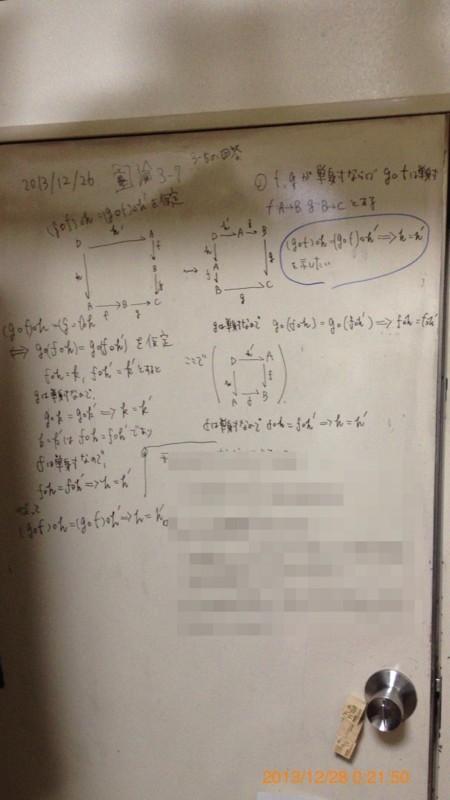 3-5の回答
2013/12/26 圏論 3-7
① f,gが単射ならば g∘fは単射
f: A→B g: B→C とする
(g∘f)∘h=(g∘f)∘h'を仮定
(g∘f)∘h=(g∘f)∘h' ⟹ h=h'
を示したい
D h' A
h f
B
g
A f B g C
D h' A f B
h g
A
f
B g C
(g∘f)∘h=(g∘f)∘h
⟺ g∘(f∘h)=g∘(f∘h') を仮定
f∘h=k, f∘h'=k'とすると
gは単射なので,
g∘k=g∘k' ⟹ k=k'
k=k'は f∘h=f∘h'であり
fは単射なので,
f∘h=f∘h' ⟹ h=h'
よって
(g∘f)∘h=(g∘f)∘h' ⟹ h=h'
gは単射なので g∘(f∘h)=g∘(f∘h') ⟹ f∘h=f∘h'
ここで
D h' A
h f
A f B
fは単射なので f∘h=f∘h' ⟹ h=h'
2013/12/28 0:21:50